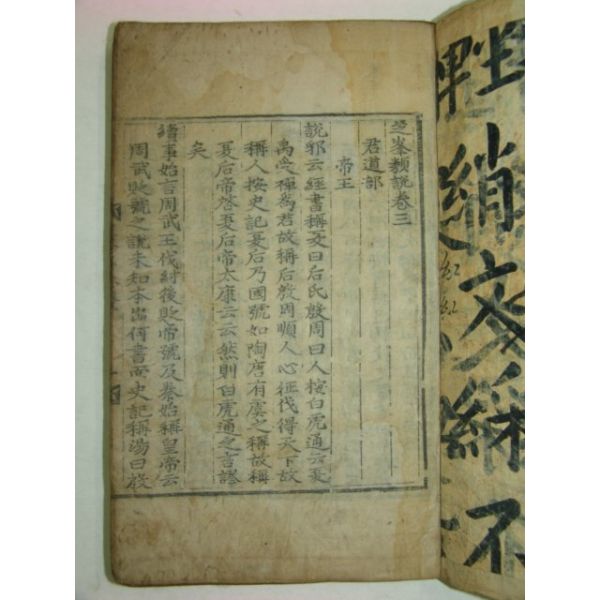 芝峯類說卷三
君道部
帝王
說郛云經書稱夏曰后氏殷周曰人按白虎通云夏
禹受禪爲君故稱后殷周順人心征伐得天下故
稱人按史記夏后乃國號如陶唐有虞之稱故稱
夏后帝啓夏后帝太康云云然則白虎通之言謬
矣
續事始言周武王伐紂後貶帝號及秦始稱皇帝云
周武貶號之說未知本出何書而史記稱湯曰殷